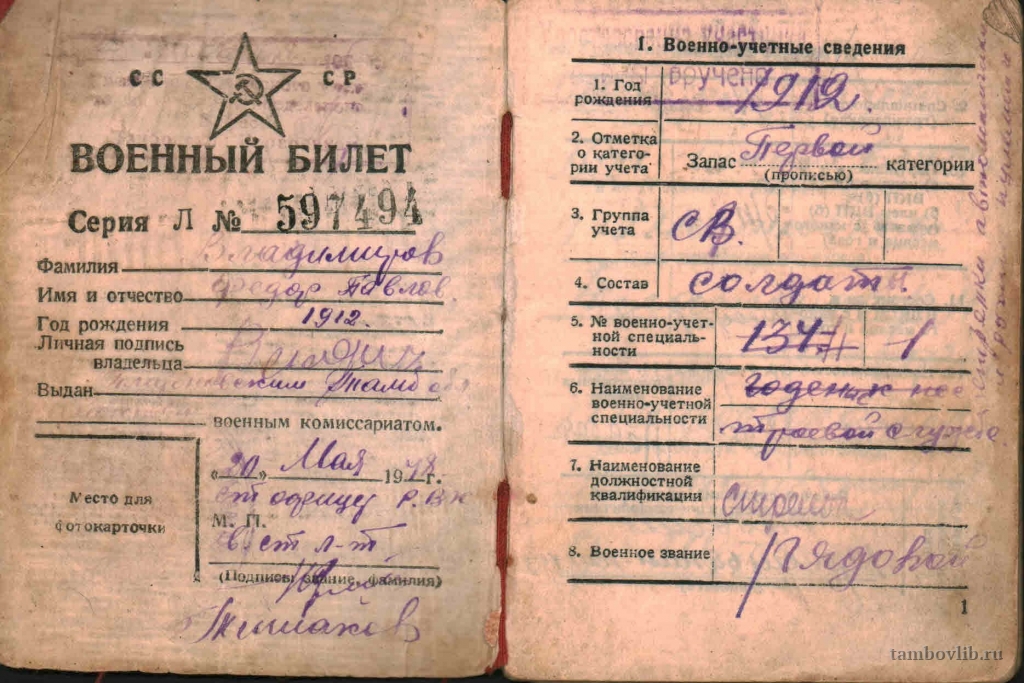 СС СР
ВОЕННЫЙ БИЛЕТ
Серия Л № 597494
Фамилия Владимиров
Имя и отчество Федор Павлов
Год рождения 1912.
Личная подпись
владельца
Выдан
военным комиссариатом.
«20» Мая 1948 г.
М. П.
в/ст л-т
(Подпись, звание, фамилия)
Место для
фотокарточки
1. Военно-учетные сведения
вручено
1. Год
рождения 1912.
2. Отметка
о катего-
рии учета Запас Первой категории
(прописью)
3. Группа
учета СВ.
4. Состав солдаты.
5. № военно-учет-
ной специаль-
ности 134 1
6. Наименование
военно-учетной
специальности годен к нес
троевой службе
7. Наименование
должностной
квалификации
8. Военное звание Рядовой
1
tambovlib.ru